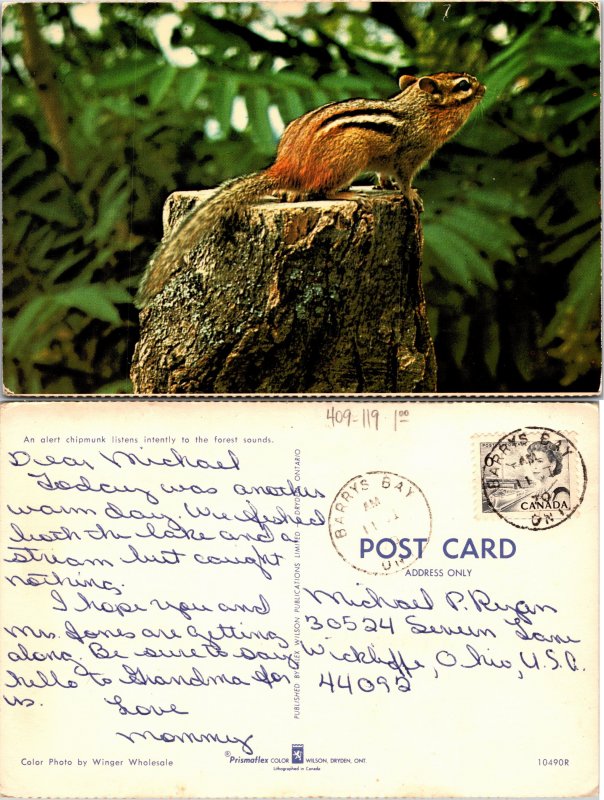 409-119 1⁰⁰
An alert chipmunk listens intently to the forest sounds.
Dear Michael
Today was another
warm day. We fished
both the lake and a
stream but caught
nothing.
I hope you and
Mrs. Jones are getting
along. Be sure to say
hello to Grandma for
us. Love
Mommy
PUBLISHED BY ALEX WILSON PUBLICATIONS LIMITED DRYDEN, ONTARIO
BARRYS BAY
AM
11
ONT
POSTES
BARRYS BAY
AM
11
70
CANADA
ONT
POST CARD
ADDRESS ONLY
Michael P. Ryan
30524 Severn Lane
Wickliffe, Ohio, U.S.A.
44092
Color Photo by Winger Wholesale
®Prismaflex COLOR WILSON, DRYDEN, ONT.
Lithographed in Canada
10490R